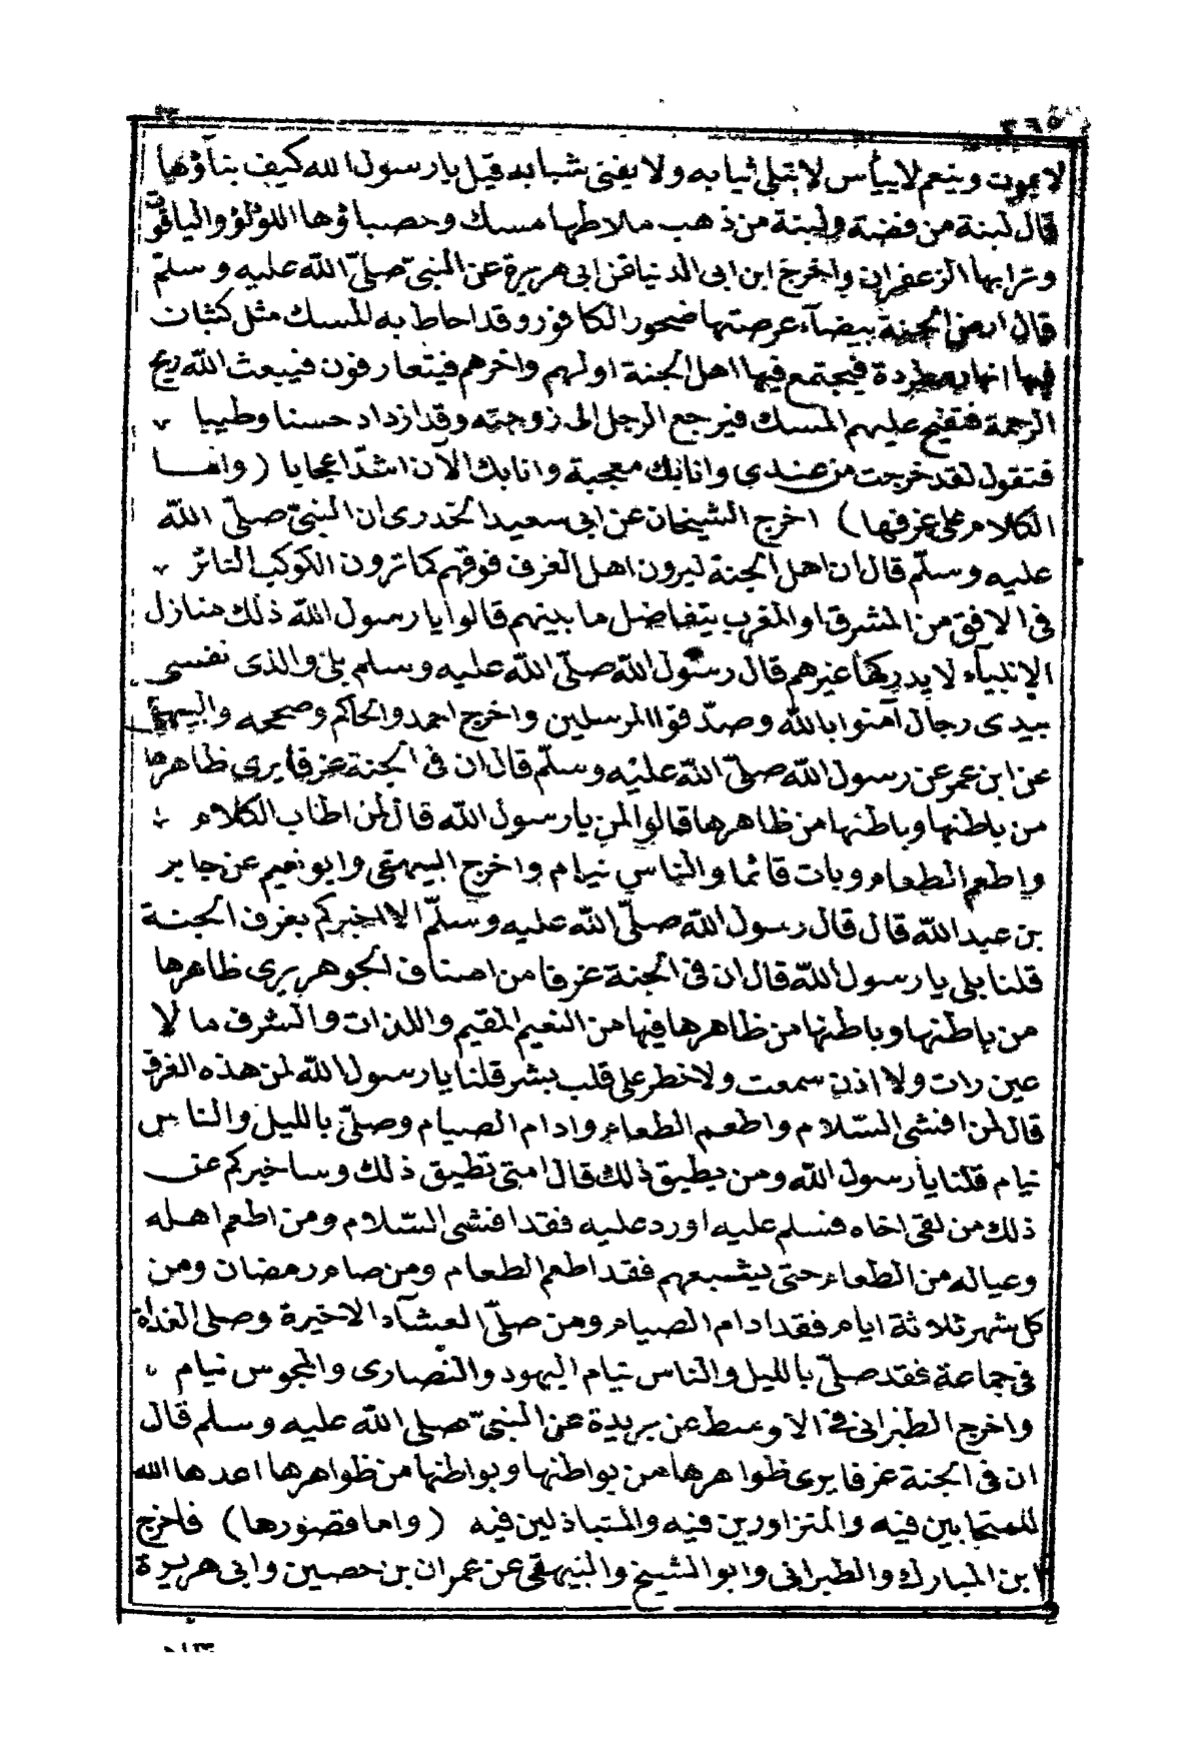 ٣٦٥
لا يموت وينعم لا ييأس لا تبلى ثيابه ولا يفنى شبابه قيل يا رسول الله كيف بنآؤها
قال لبنة من فضة ولبنة من ذهب ملاطها مسك وحصباؤها اللؤلؤ والياقوت
وترابها الزعفران واخرج ابن ابى الدنيا عن ابى هريرة عن النبىّ صلىّ الله عليه وسلمّ
قال ارض الجنة بيضآء عرصتها صخور الكافور وقد احاط به المسك مثل كثبان
فيها انهار مطردة فيجتمع فيها اهل الجنة اولهم واخرهم فيتعارفون فيبعث الله ريح
الرحمة فتفيح عليهم المسك فيرجع الرجل الى زوجته وقد ازداد حسنا وطيبا
فتقول لقد خرجت من عندى وانا بك معجبة وانا بك الآن اشدّ اعجابا (واما
الكلام على غرفها) اخرج الشيخان عن ابى سعيد الخدرى ان النبىّ صلىّ الله
عليه وسلمّ قال ان اهل الجنة ليرون اهل الغرف فوقهم كما ترون الكوكب الغائر
فى الافق من المشرق او المغرب يتفاضل ما بينهم قالوا يا رسول الله ذلك منازل
الانبيآء لا يدركها غيرهم قال رسول الله صلىّ الله عليه وسلم بلى والذى نفسى
بيدى رجال آمنوا بالله وصدّقوا المرسلين واخرج احمد والحاكم وصححه والبيهقى
عن ابن عمر عن رسول الله صلىّ الله عليه وسلمّ قال ان فى الجنة غرفا يرى ظاهرها
من باطنها وباطنها من ظاهرها قالوا لمن يا رسول الله قال لمن اطاب الكلام
واطعم الطعام وبات قائما والناس نيام واخرج البيهقى وابو نعيم عن جابر
بن عبد الله قال قال رسول الله صلىّ الله عليه وسلمّ الا اخبركم بغرف الجنة
قلنا بلى يا رسول الله قال ان فى الجنة غرفا من اصناف الجوهر يرى ظاهرها
من باطنها وباطنها من ظاهرها فيها من النعيم المقيم واللذات والشرف ما لا
عين رات ولا اذن سمعت ولا خطر على قلب بشر قلنا يا رسول الله لمن هذه الغرف
قال لمن افشى السّلام واطعم الطعام وادام الصيام وصلىّ بالليل والناس
نيام قلنا يا رسول الله ومن يطيق ذلك قال امتى تطيق ذلك وساخبركم عن
ذلك من لقى اخاه فسلم عليه او رد عليه فقد افشى السّلام ومن اطعم اهله
وعياله من الطعام حتى يشبعهم فقد اطعم الطعام ومن صام رمضان ومن
كل شهر ثلاثة ايام فقد ادام الصيام ومن صلىّ العشآء الاخيرة وصلى الغداة
فى جماعة فقد صلىّ بالليل والناس نيام اليهود والنصارى والمجوس نيام
واخرج الطبرانى فى الاوسط عن بريدة عن النبىّ صلى الله عليه وسلم قال
ان فى الجنة غرفا يرى ظواهرها من بواطنها وبواطنها من ظواهرها اعدها الله
للمتحابين فيه والمتزاورين فيه والمتباذلين فيه (واما قصورها) فاخرج
ابن المبارك والطبرانى وابو الشيخ والبيهقى عن عمران بن حصين وابى هريرة